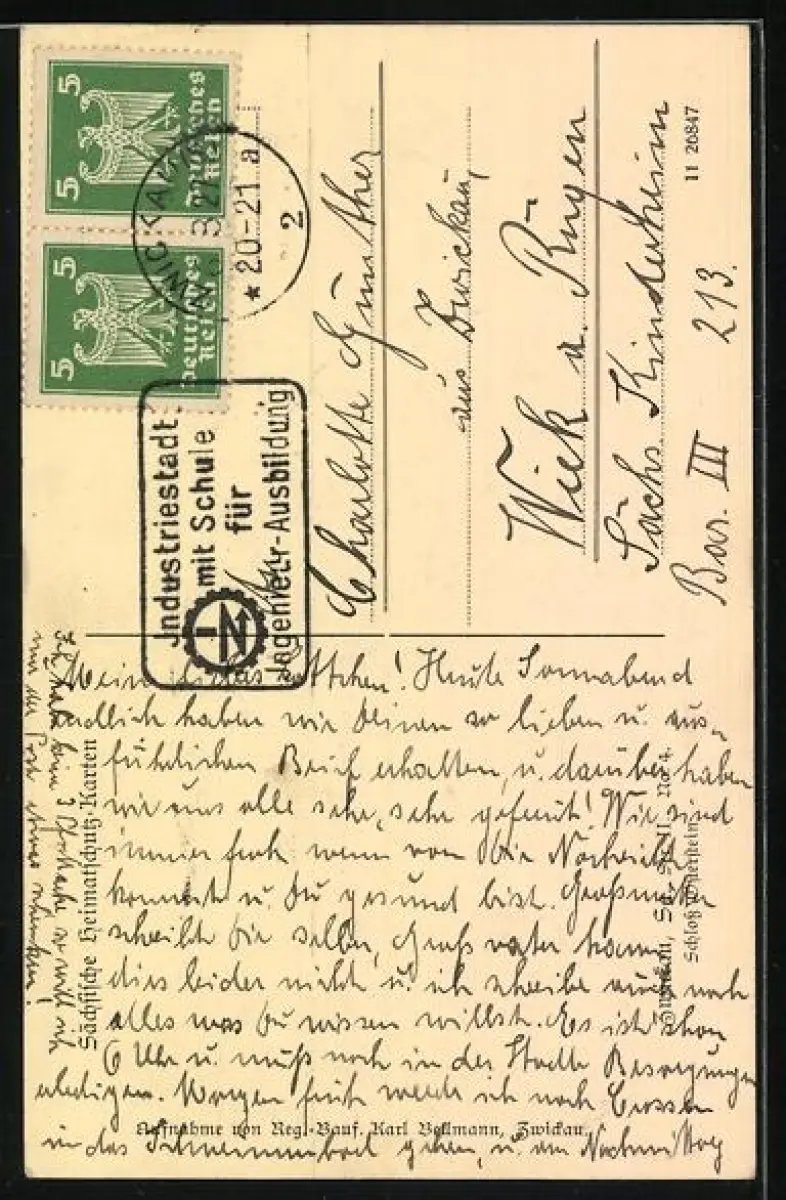 5
5
Deutsches
Reich
5
5
Deutsches
Reich
ZWICKAU
3.27
* 20-21 a
2
Industriestadt
mit Schule
für
Ingenieur-Ausbildung
IN
Charlotte Günther
aus Zwickau,
Wiek a. Rügen
Sächs. Kinderheim
Bar. III 213.
11 20847
Mein liebes Lottchen! Heute Sonnabend
endlich haben wir Deinen so lieben u. aus-
führlichen Brief erhalten, u. darüber haben
wir uns alle sehr, sehr gefreut! Wir sind
immer froh wenn von Dir Nachricht
kommt u. Du gesund bist. Großmutter
schreibt Dir selber, Großvater kann
dies leider nicht u. ich schreibe auch noch
alles was Du wissen willst. Es ist schon
6 Uhr u. muß noch in der Stadt Besorgungen
erledigen. Morgen früh werde ich nach Crossen
in das Schwimmbad gehen, u. am Nachmittag
Ich habe keine
so will ich
nur der Post etwas schenken!
Sächsische Heimatschutz-Karten
Zwickau, Sa.
Schloß Osterstein
Aufnahme von Reg.-Bauf. Karl Bellmann, Zwickau.